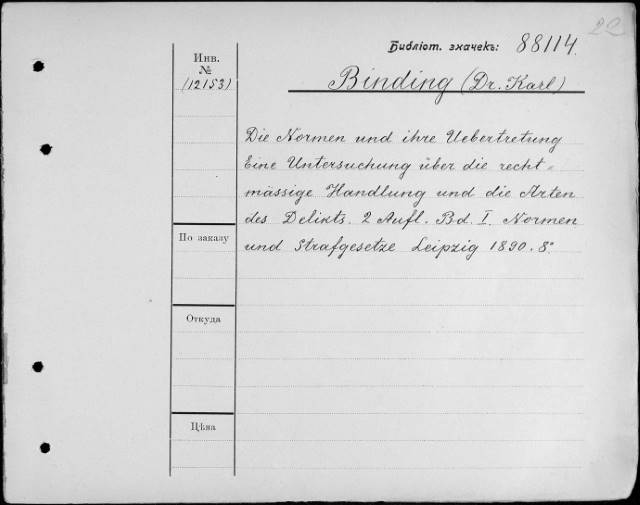 2C
Библіот. значекъ: 88114.
Инв.
№
(12153)
Binding (Dr. Karl)
Die Normen und ihre Uebertretung
Eine Untersuchung über die recht-
mässige Handlung und die Arten
des Delikts. 2 Aufl. Bd. I. Normen
und Strafgesetze Leipzig 1890. 8°
По заказу
Откуда
Цѣна